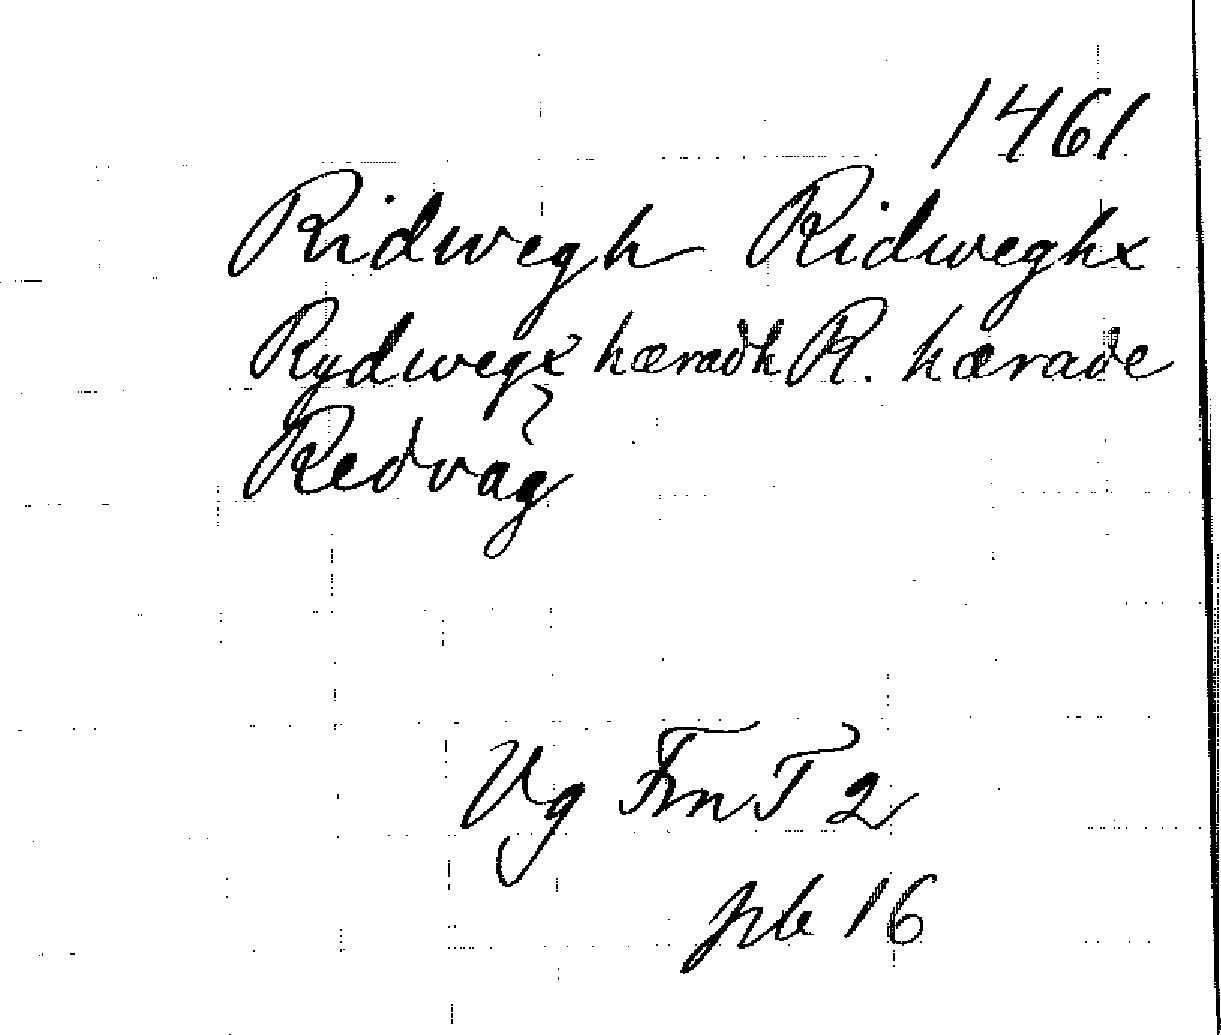 1461
Ridwegh Ridweghx
Rydwegx hæradh R. hærade
Redvåg
Vg FmT 2
pb 16